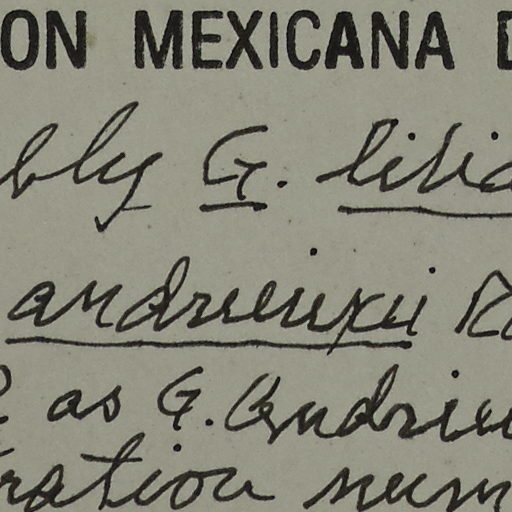 ON MEXICANA D
bly G. lilia
andrieuxii R
as G. Andrieu
ration num